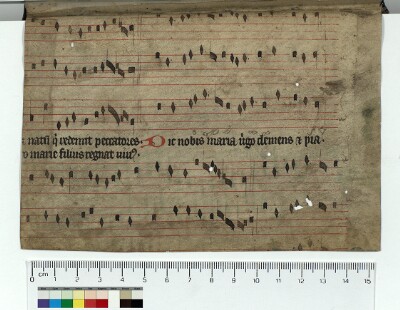 natū q̄ redemit peccatores. Dic nobis maria ỽgo clemens ⁊ pia.
marie filius regnat
cm
0 1 2 3 4 5 6 7 8 9 10 11 12 13 14 15